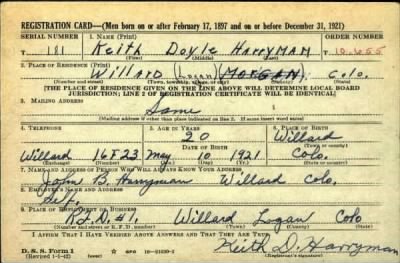 REGISTRATION CARD—(Men born on or after February 17, 1897 and on or before December 31, 1921)
SERIAL NUMBER 1. NAME (Print) ORDER NUMBER
T 181 Keith Doyle Harryman T 10,655
(First) (Middle) (Last)
2. PLACE OF RESIDENCE (Print)
Willard (Logan) MORGAN Colo.
(Number and street) (Town, township, village, or city) (County) (State)
[THE PLACE OF RESIDENCE GIVEN ON THE LINE ABOVE WILL DETERMINE LOCAL BOARD
JURISDICTION; LINE 2 OF REGISTRATION CERTIFICATE WILL BE IDENTICAL]
3. MAILING ADDRESS
Same
[Mailing address if other than place indicated on line 2. If same insert word same]
4. TELEPHONE 5. AGE IN YEARS 6. PLACE OF BIRTH
20 Willard
DATE OF BIRTH (Town or county)
Willard 16F23 May 10 1921 Colo.
(Exchange) (Number) (Mo.) (Day) (Yr.) (State or country)
7. NAME AND ADDRESS OF PERSON WHO WILL ALWAYS KNOW YOUR ADDRESS
John B. Harryman Willard Colo.
8. EMPLOYER'S NAME AND ADDRESS
Self.
9. PLACE OF EMPLOYMENT OR BUSINESS
R.F.D. #1. Willard Logan Colo
(Number and street or R. F. D. number) (Town) (County) (State)
I AFFIRM THAT I HAVE VERIFIED ABOVE ANSWERS AND THAT THEY ARE TRUE.
D. S. S. Form 1
(Revised 1-1-42) (over)
Keith D. Harryman
(Registrant's signature)